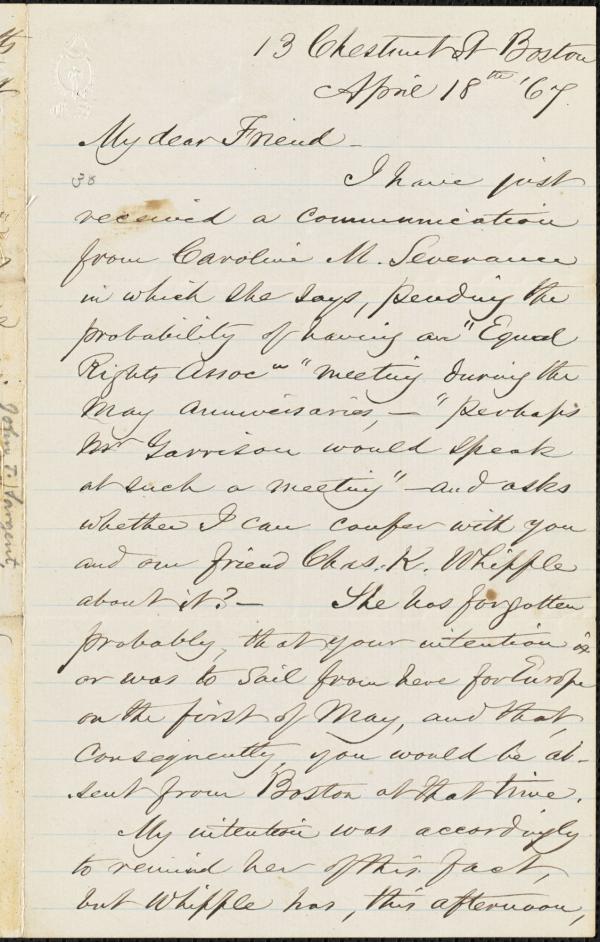 13 Chestnut St Boston
April 18th '67.
My dear Friend -
38
I have just
received a communication
from Caroline M. Severance
in which she says, pending the
probability of having an "Equal
Rights Assocn" meeting during the
May Anniversaries, - "perhaps
Mr Garrison would speak
at such a meeting" - and asks
whether I can confer with you
and our friend Chas. K. Whipple
about it? - She has forgotten
probably, that your intention is
or was to sail from here for Europe
on the first of May, and that,
consequently, you would be ab-
sent from Boston at that time.
My intention was accordingly
to remind her of this fact,
but Whipple has, this afternoon,
John T. Sargent